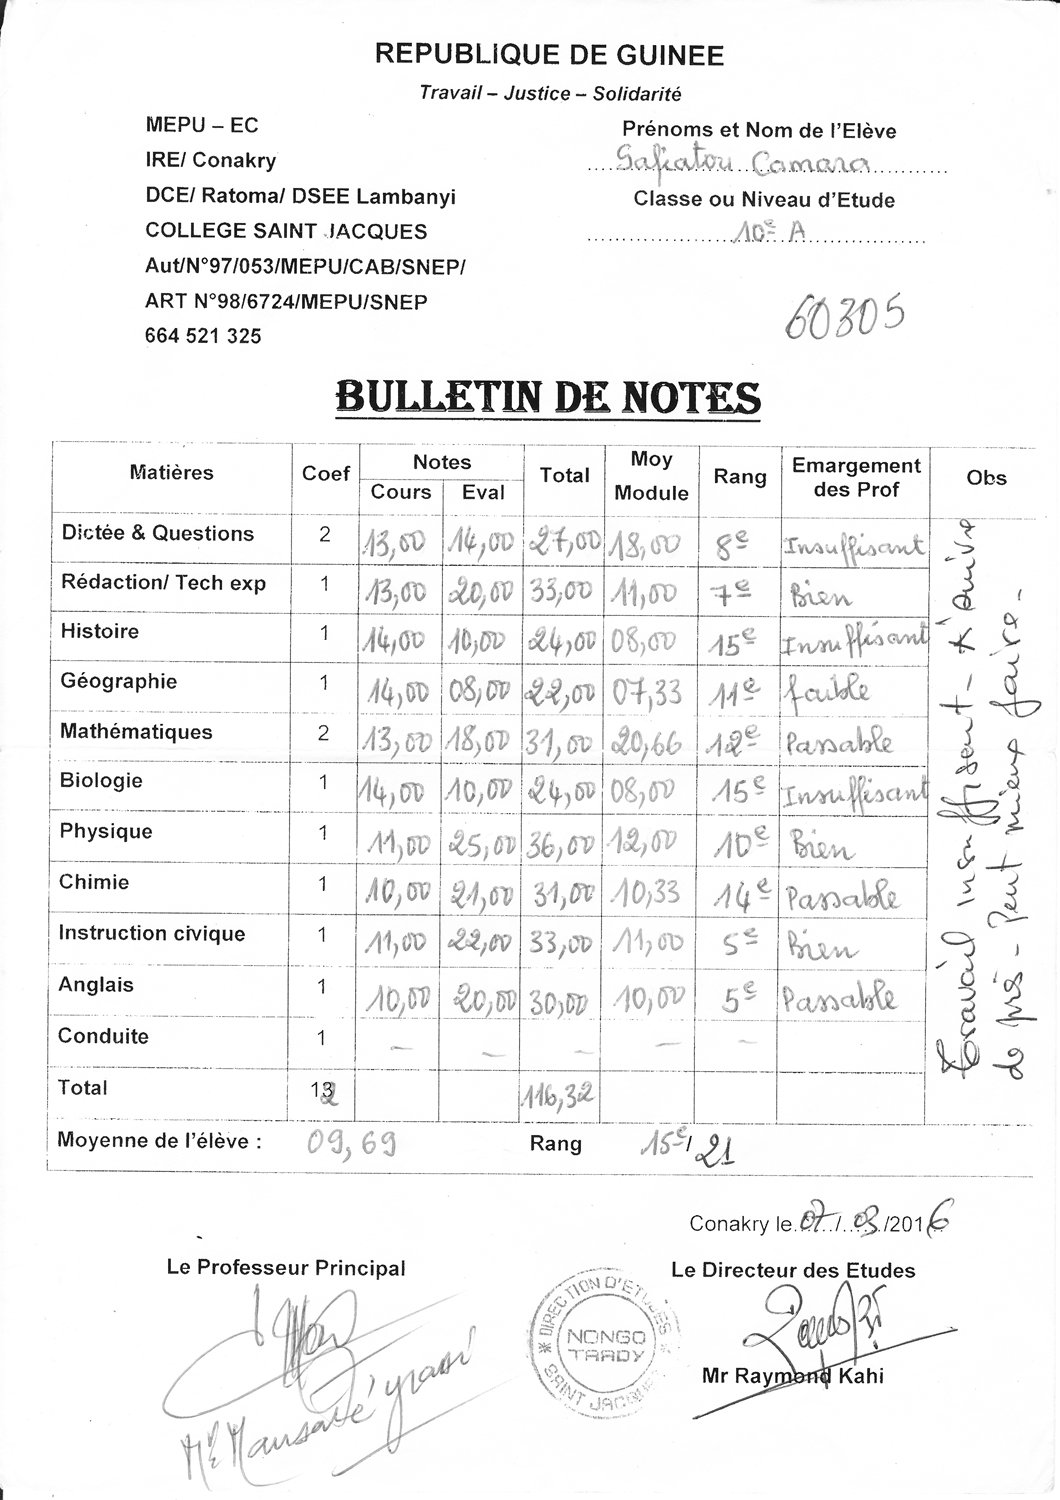 REPUBLIQUE DE GUINEE
Travail – Justice – Solidarité
MEPU – EC
IRE/ Conakry
DCE/ Ratoma/ DSEE Lambanyi
COLLEGE SAINT JACQUES
Aut/N°97/053/MEPU/CAB/SNEP/
ART N°98/6724/MEPU/SNEP
664 521 325
Prénoms et Nom de l'Elève
Safiatou Camara
Classe ou Niveau d'Etude
10e A
60305
BULLETIN DE NOTES
Matières Coef Notes Total Moy Module Rang Emargement des Prof Obs
Cours Eval
Dictée & Questions 2 13,00 14,00 27,00 18,00 8e Insuffisant
Rédaction/ Tech exp 1 13,00 20,00 33,00 11,00 7e Bien
Histoire 1 14,00 10,00 24,00 08,00 15e Insuffisant
Géographie 1 14,00 08,00 22,00 07,33 11e faible
Mathématiques 2 13,00 18,00 31,00 20,66 12e Passable
Biologie 1 14,00 10,00 24,00 08,00 15e Insuffisant
Physique 1 11,00 25,00 36,00 12,00 10e Bien
Chimie 1 10,00 21,00 31,00 10,33 14e Passable
Instruction civique 1 11,00 22,00 33,00 11,00 5e Bien
Anglais 1 10,00 20,00 30,00 10,00 5e Passable
Conduite 1 – – – – –
Total 12 116,32
Travail insuffisant – A suivre
de près – Peut mieux faire –
Moyenne de l'élève : 09,69 Rang 15e/21
Conakry le 07/03/2016
Le Professeur Principal
Le Directeur des Etudes
DIRECTION D'ETUDES
NONGO
TAADY
SAINT JACQUES
Mr Raymond Kahi